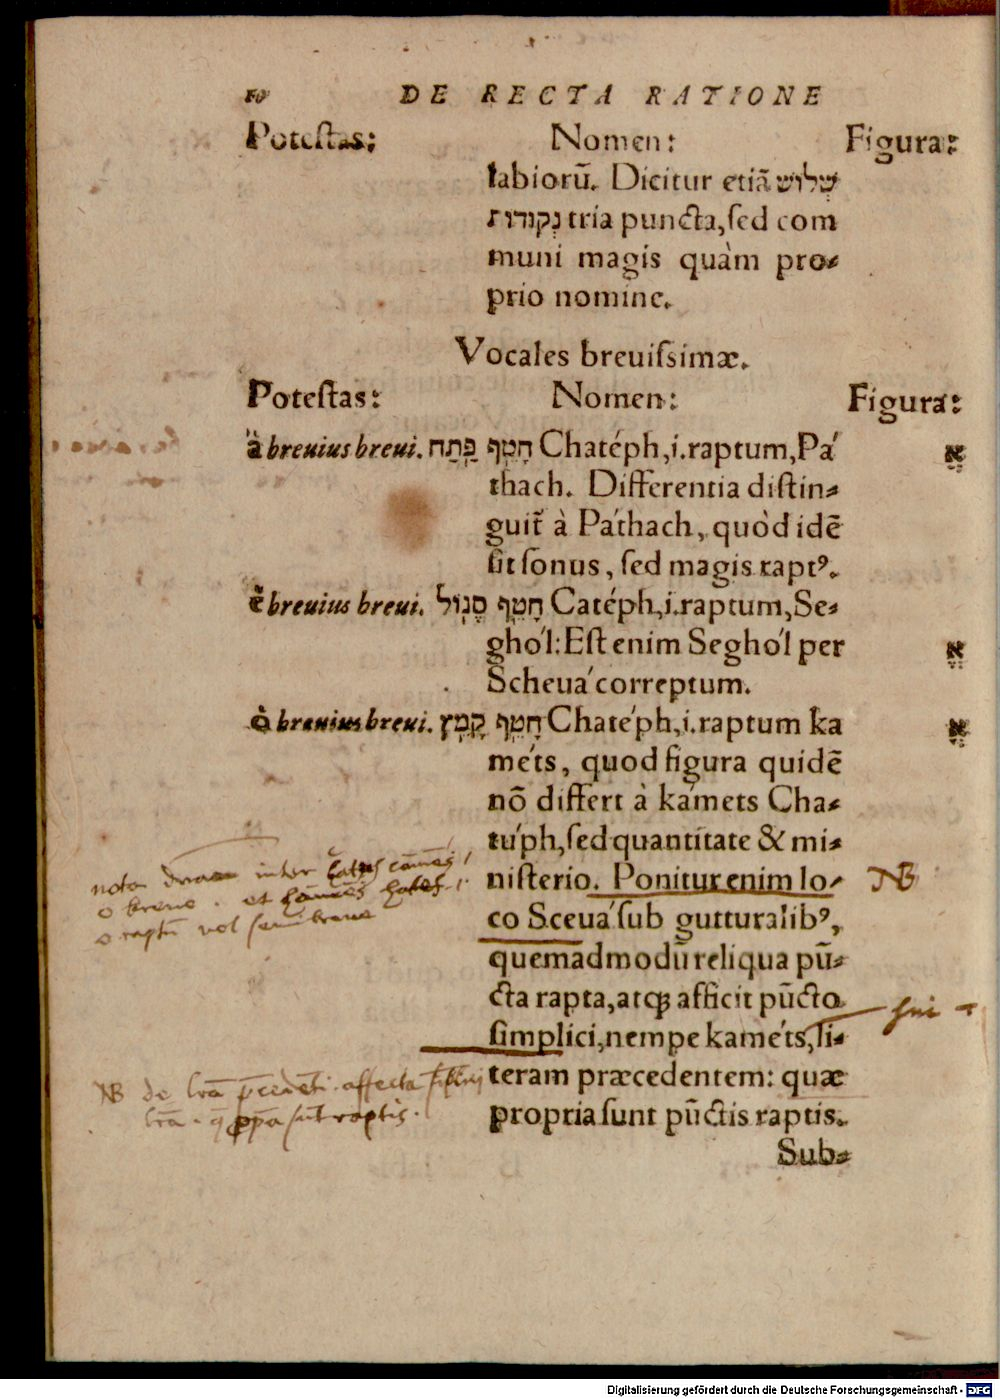 10 DE RECTA RATIONE
Poteſtas: Nomen: Figura:
labiorū. Dicitur etiā שָׁלוֹשׁ
נְקוּדוֹת tria puncta, ſed com
muni magis quàm pro-
prio nomine.
Vocales breuiſsimæ.
Poteſtas: Nomen: Figura:
ă breuius breui. חָטֵף פַּתַח Chatéph, i. raptum, Pá אֲ
thach. Differentia diſtin-
guit̃ à Páthach, quòd idē
ſit ſonus, ſed magis raptꝰ.
ĕ breuius breui. חָטֵף סֶגוֹל Catéph, i. raptum, Se- אֱ
ghól: Eſt enim Seghól per
Scheuá correptum.
ŏ breuius breui. חָטֵף קָמֵץ Chatéph, i. raptum ka אֳ
méts, quod figura quidē
nō differt à kámets Cha-
túph, ſed quantitate & mi-
niſterio. Ponitur enim lo- NB
co Sceuá ſub gutturalibꝰ,
quemadmodū reliqua pū-
cta rapta, atqꝫ afficit pūcto
ſimplici, nempe kaméts, li-
teram præcedentem: quæ
propria ſunt pūctis raptis.
Sub-
nota inter
o breue . et
o raptū vel ſemibreue
NB de lr̄a affecta
lr̄a . ſunt raptis .